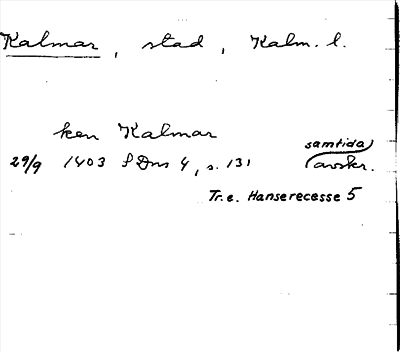 Kalmar, stad, Kalm. l.
ken Kalmar
samtida
29/9 1403 SDns 4, s. 131 avskr.
Tr. e. Hanserecesse 5